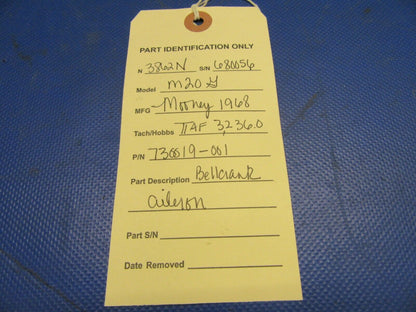 PART IDENTIFICATION ONLY
N 3862N S/N 680056
Model M20 G
MFG Mooney 1968
Tach/Hobbs TTAF 3,236.0
P/N 730019-001
Part Description Bellcrank
aileron
Part S/N
Date Removed